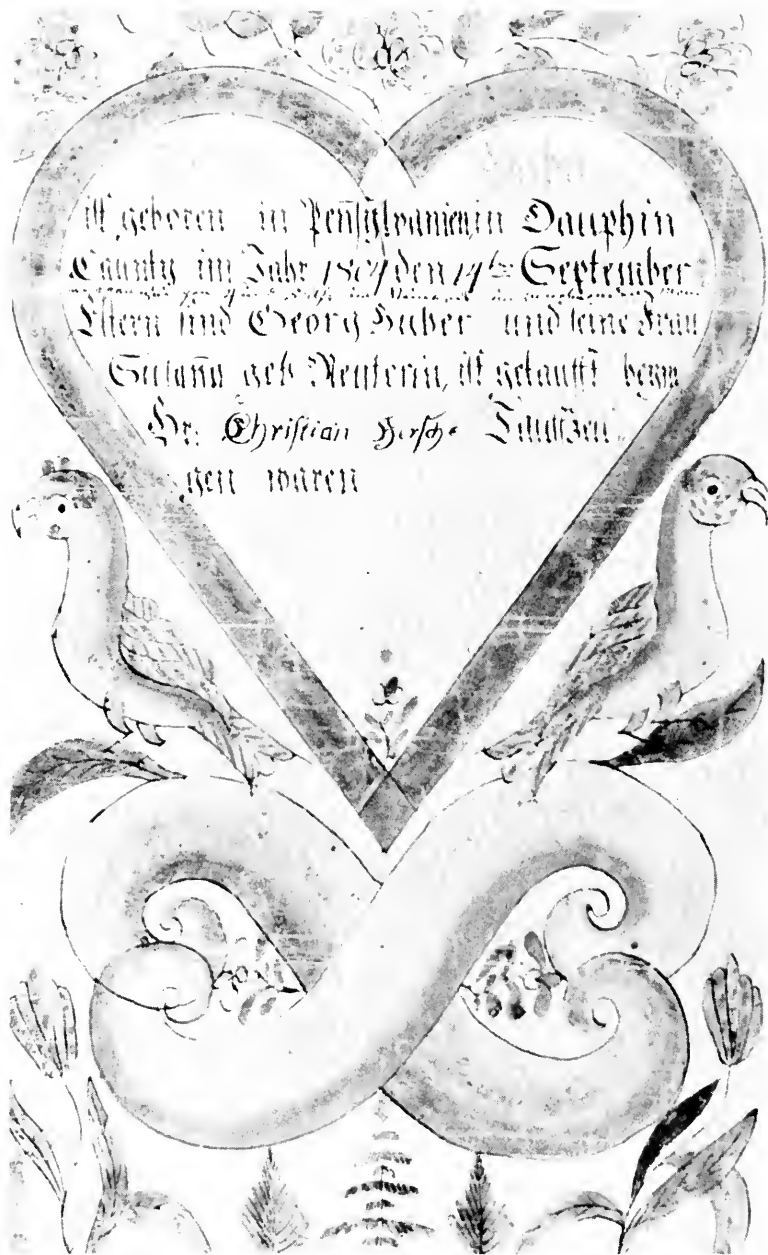 ist geboren in Penñsÿlvanien, in Dauphin
County im Jahr 1804 den 14ten September
Eltern sind Georg Huber und seine Frau
Susanña geb Reuterin, ist getaufft beym
Hr: Christian Hersche Taufzeu
gen waren